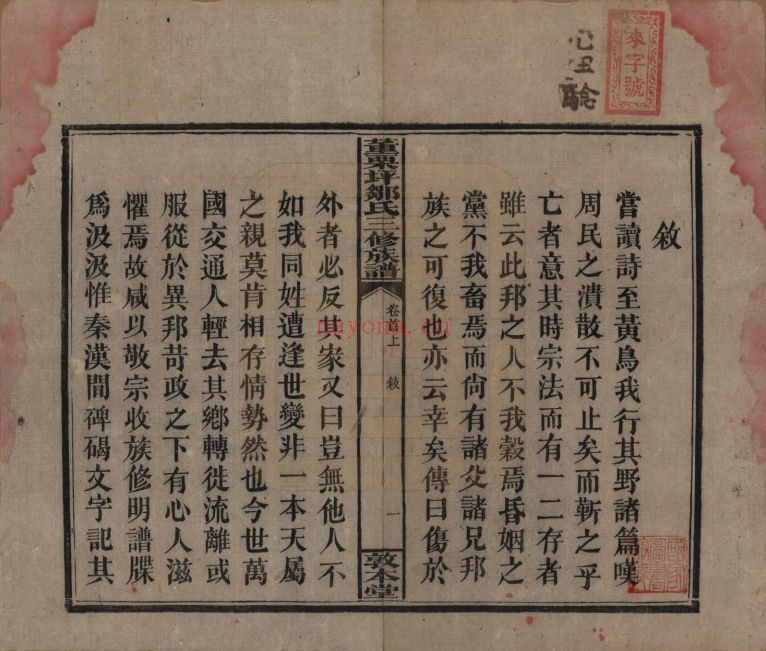 來字號
敘
嘗讀詩至黃鳥我行其野諸篇嘆
周民之潰散不可止矣而靳之乎
亡者意其時宗法而有一二存者
雖云此邦之人不我穀焉昏姻之
黨不我畜焉而尙有諸父諸兄邦
族之可復也亦云幸矣傳曰傷於
董栗坪鄒氏三修族譜
卷首上
敘
一
敦本堂
外者必反其家又曰豈無他人不
如我同姓遭逢世變非一本天屬
之親莫肯相存情勢然也今世萬
國交通人輕去其鄉轉徙流離或
服從於異邦苛政之下有心人滋
懼焉故咸以敬宗收族修明譜牒
爲汲汲惟秦漢間碑碣文字記其